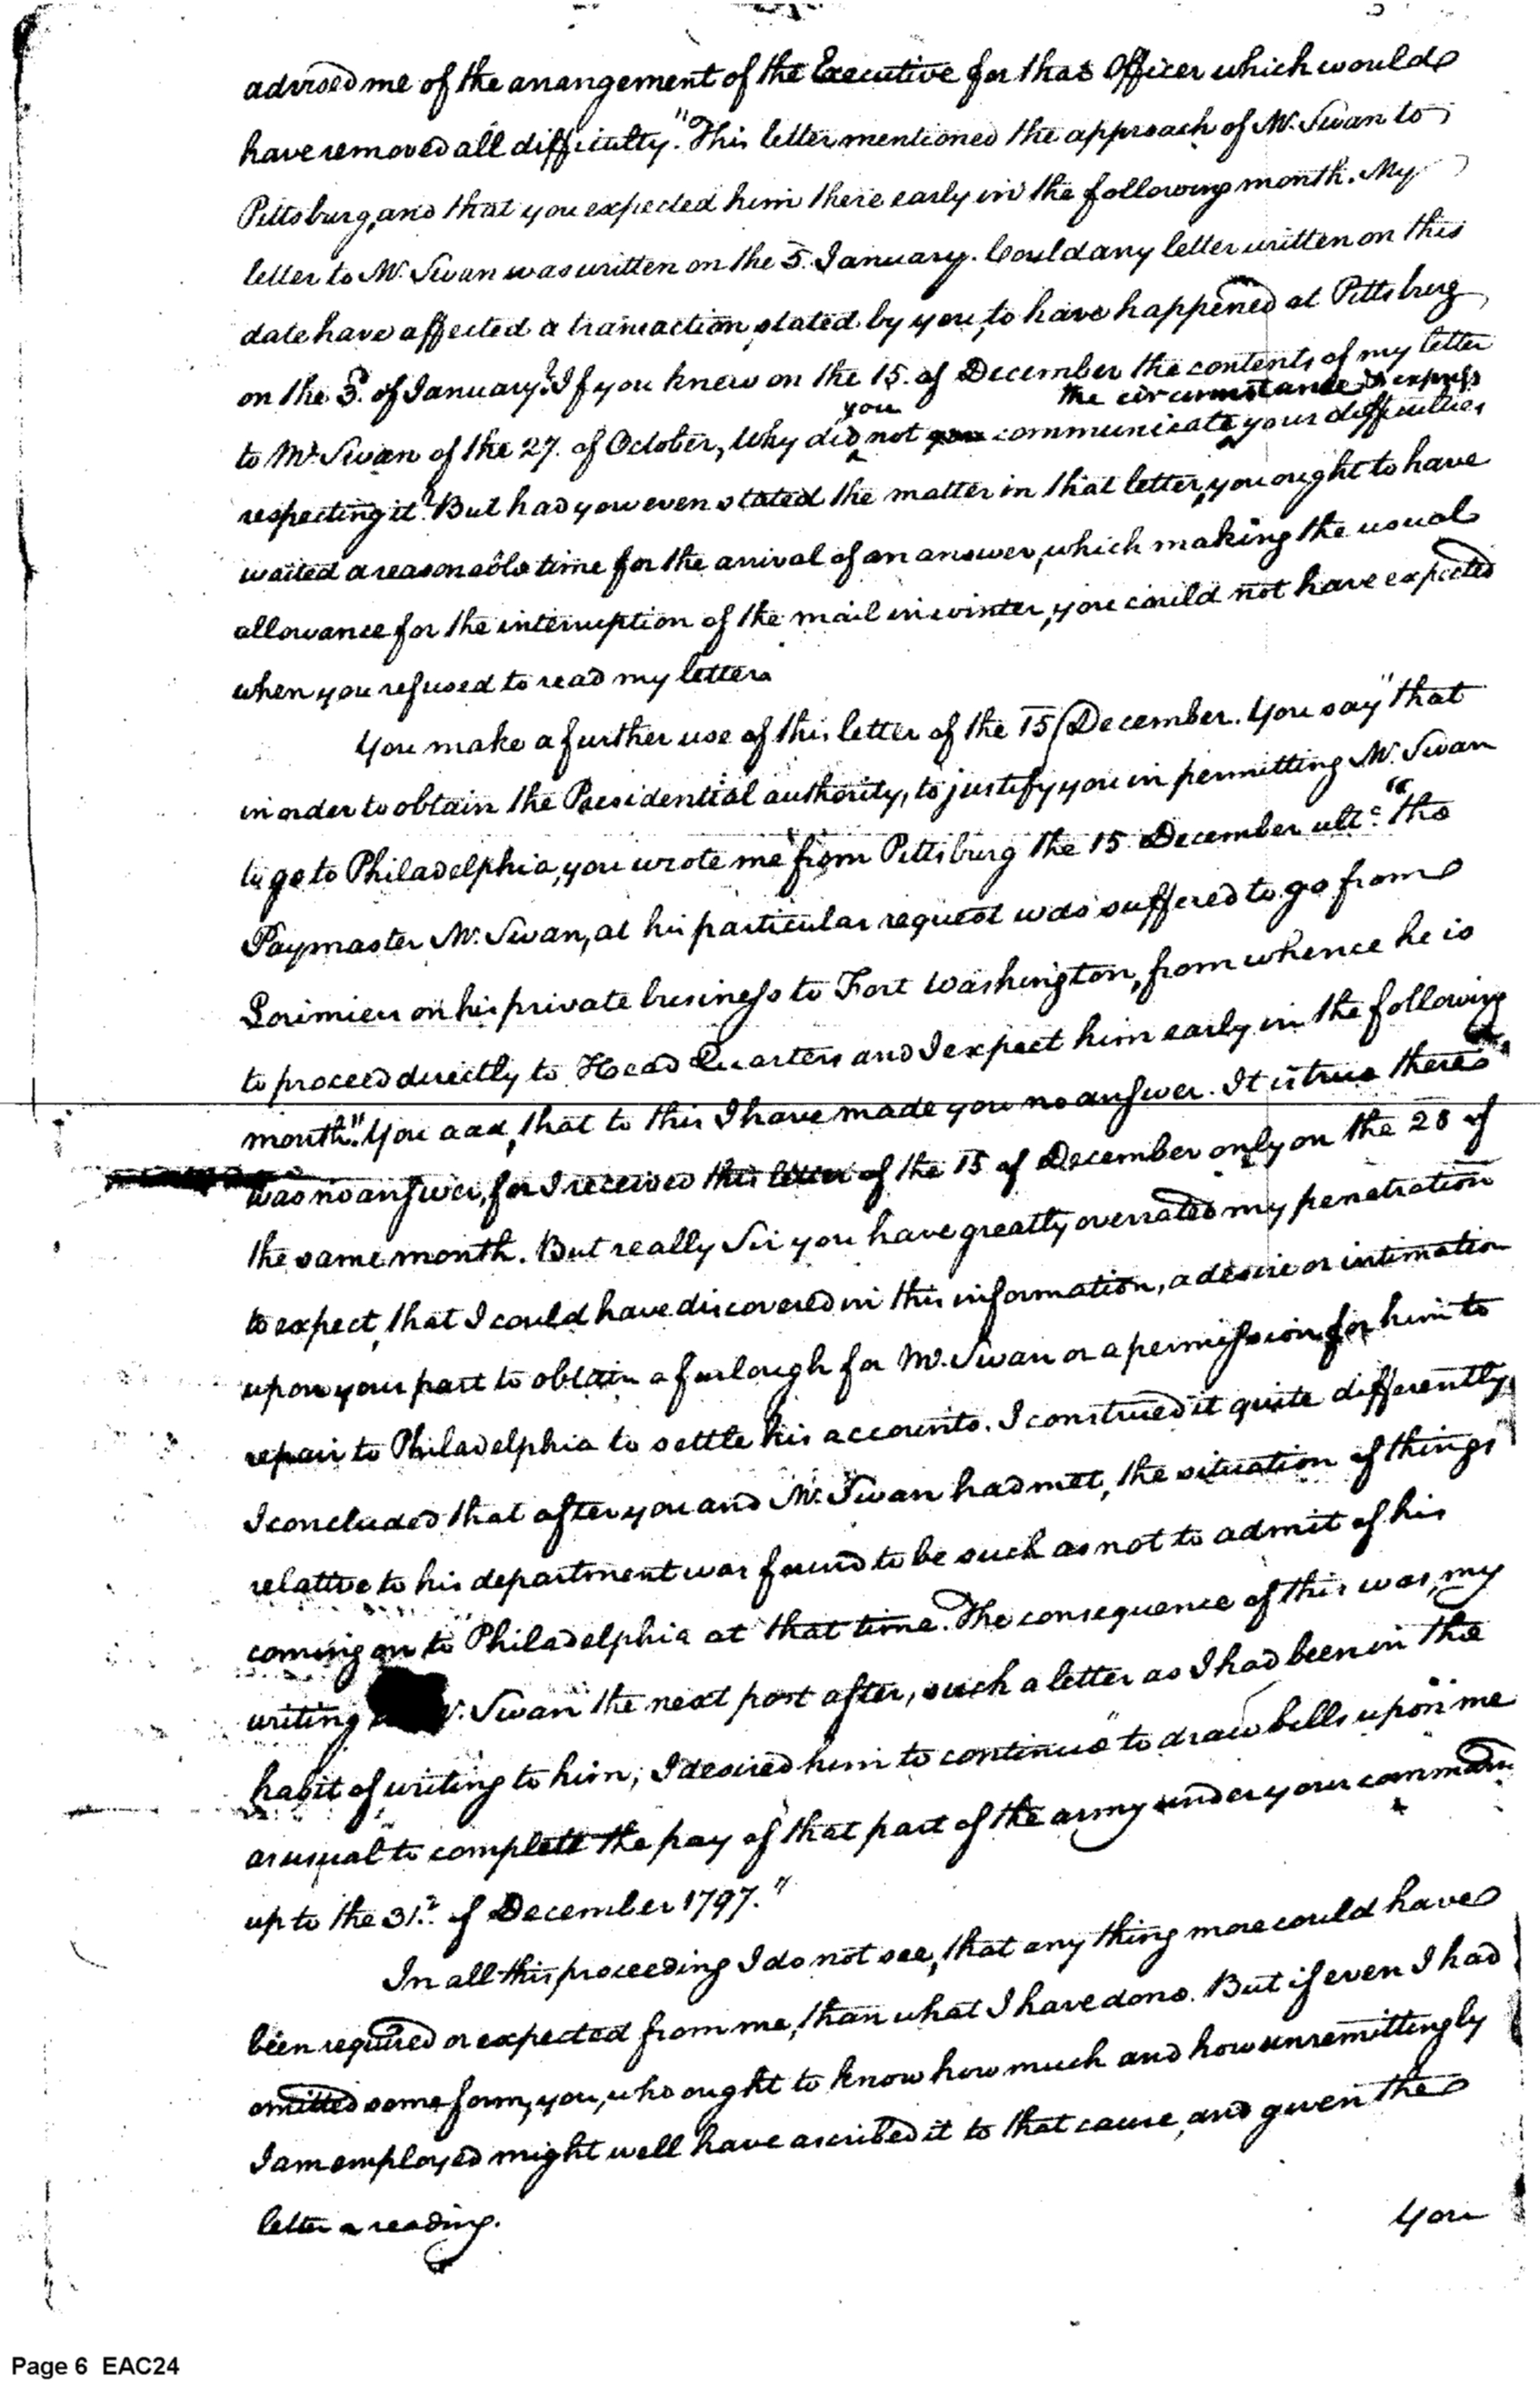 advised me of the arrangement of the Executive for that Officer which would
have removed all difficulty." This letter mentioned the approach of Mr. Swan to
Pittsburg, and that you expected him there early in the following month. My
letter to Mr. Swan was written on the 5. January. Could any letter written on this
date have affected a transaction, stated by you, to have happened at Pittsburg
on the 3d. of January? If you knew on the 15. of December the contents of my letter
you the circumstance & express
to Mr. Swan of the 27. of October, Why did not you communicate your difficulties
respecting it? But had you even stated the matter in that letter, you ought to have
waited a reasonable time for the arrival of an answer, which making the usual
allowance for the interruption of the mail in winter, you could not have expected
when you refused to read my letter.
You make a further use of this letter of the 15 December. You say "that
in order to obtain the Presidential authority, to justify you in permitting Mr. Swan
to go to Philadelphia, you wrote me from Pittsburg the 15 December ulto. "the
Paymaster Mr. Swan, at his particular request was suffered to go from
Lorimiers on his private business to Fort Washington, from whence he is
to proceed directly to Head Quarters and I expect him early in the following
month." You add, that to this I have made you no answer. It is true there
was no answer, for I received this letter of the 15 of December only on the 28 of
the same month. But really Sir you have greatly overrated my penetration
to expect, that I could have discovered in this information, a desire or intimation
upon your part to obtain a furlough for Mr. Swan or a permission for him to
repair to Philadelphia to settle his accounts. I construed it quite differently
I concluded that after you and Mr. Swan had met, the situation of things
relative to his department was found to be such as not to admit of his
coming on to Philadelphia at that time. The consequence of this was, my
writing Swan the next post after, such a letter as I had been in the
habit of writing to him; I desired him to continue "to draw bills upon me
as usual to complett the pay of that part of the army under your command
up to the 31st. of December 1797."
In all this proceeding I do not see, that any thing more could have
been required or expected from me, than what I have done. But if even I had
omitted some form, you, who ought to know how much and how unremittingly
I am employed might well have ascribed it to that cause, and given the
letter a reading.
You
Page 6 EAC24